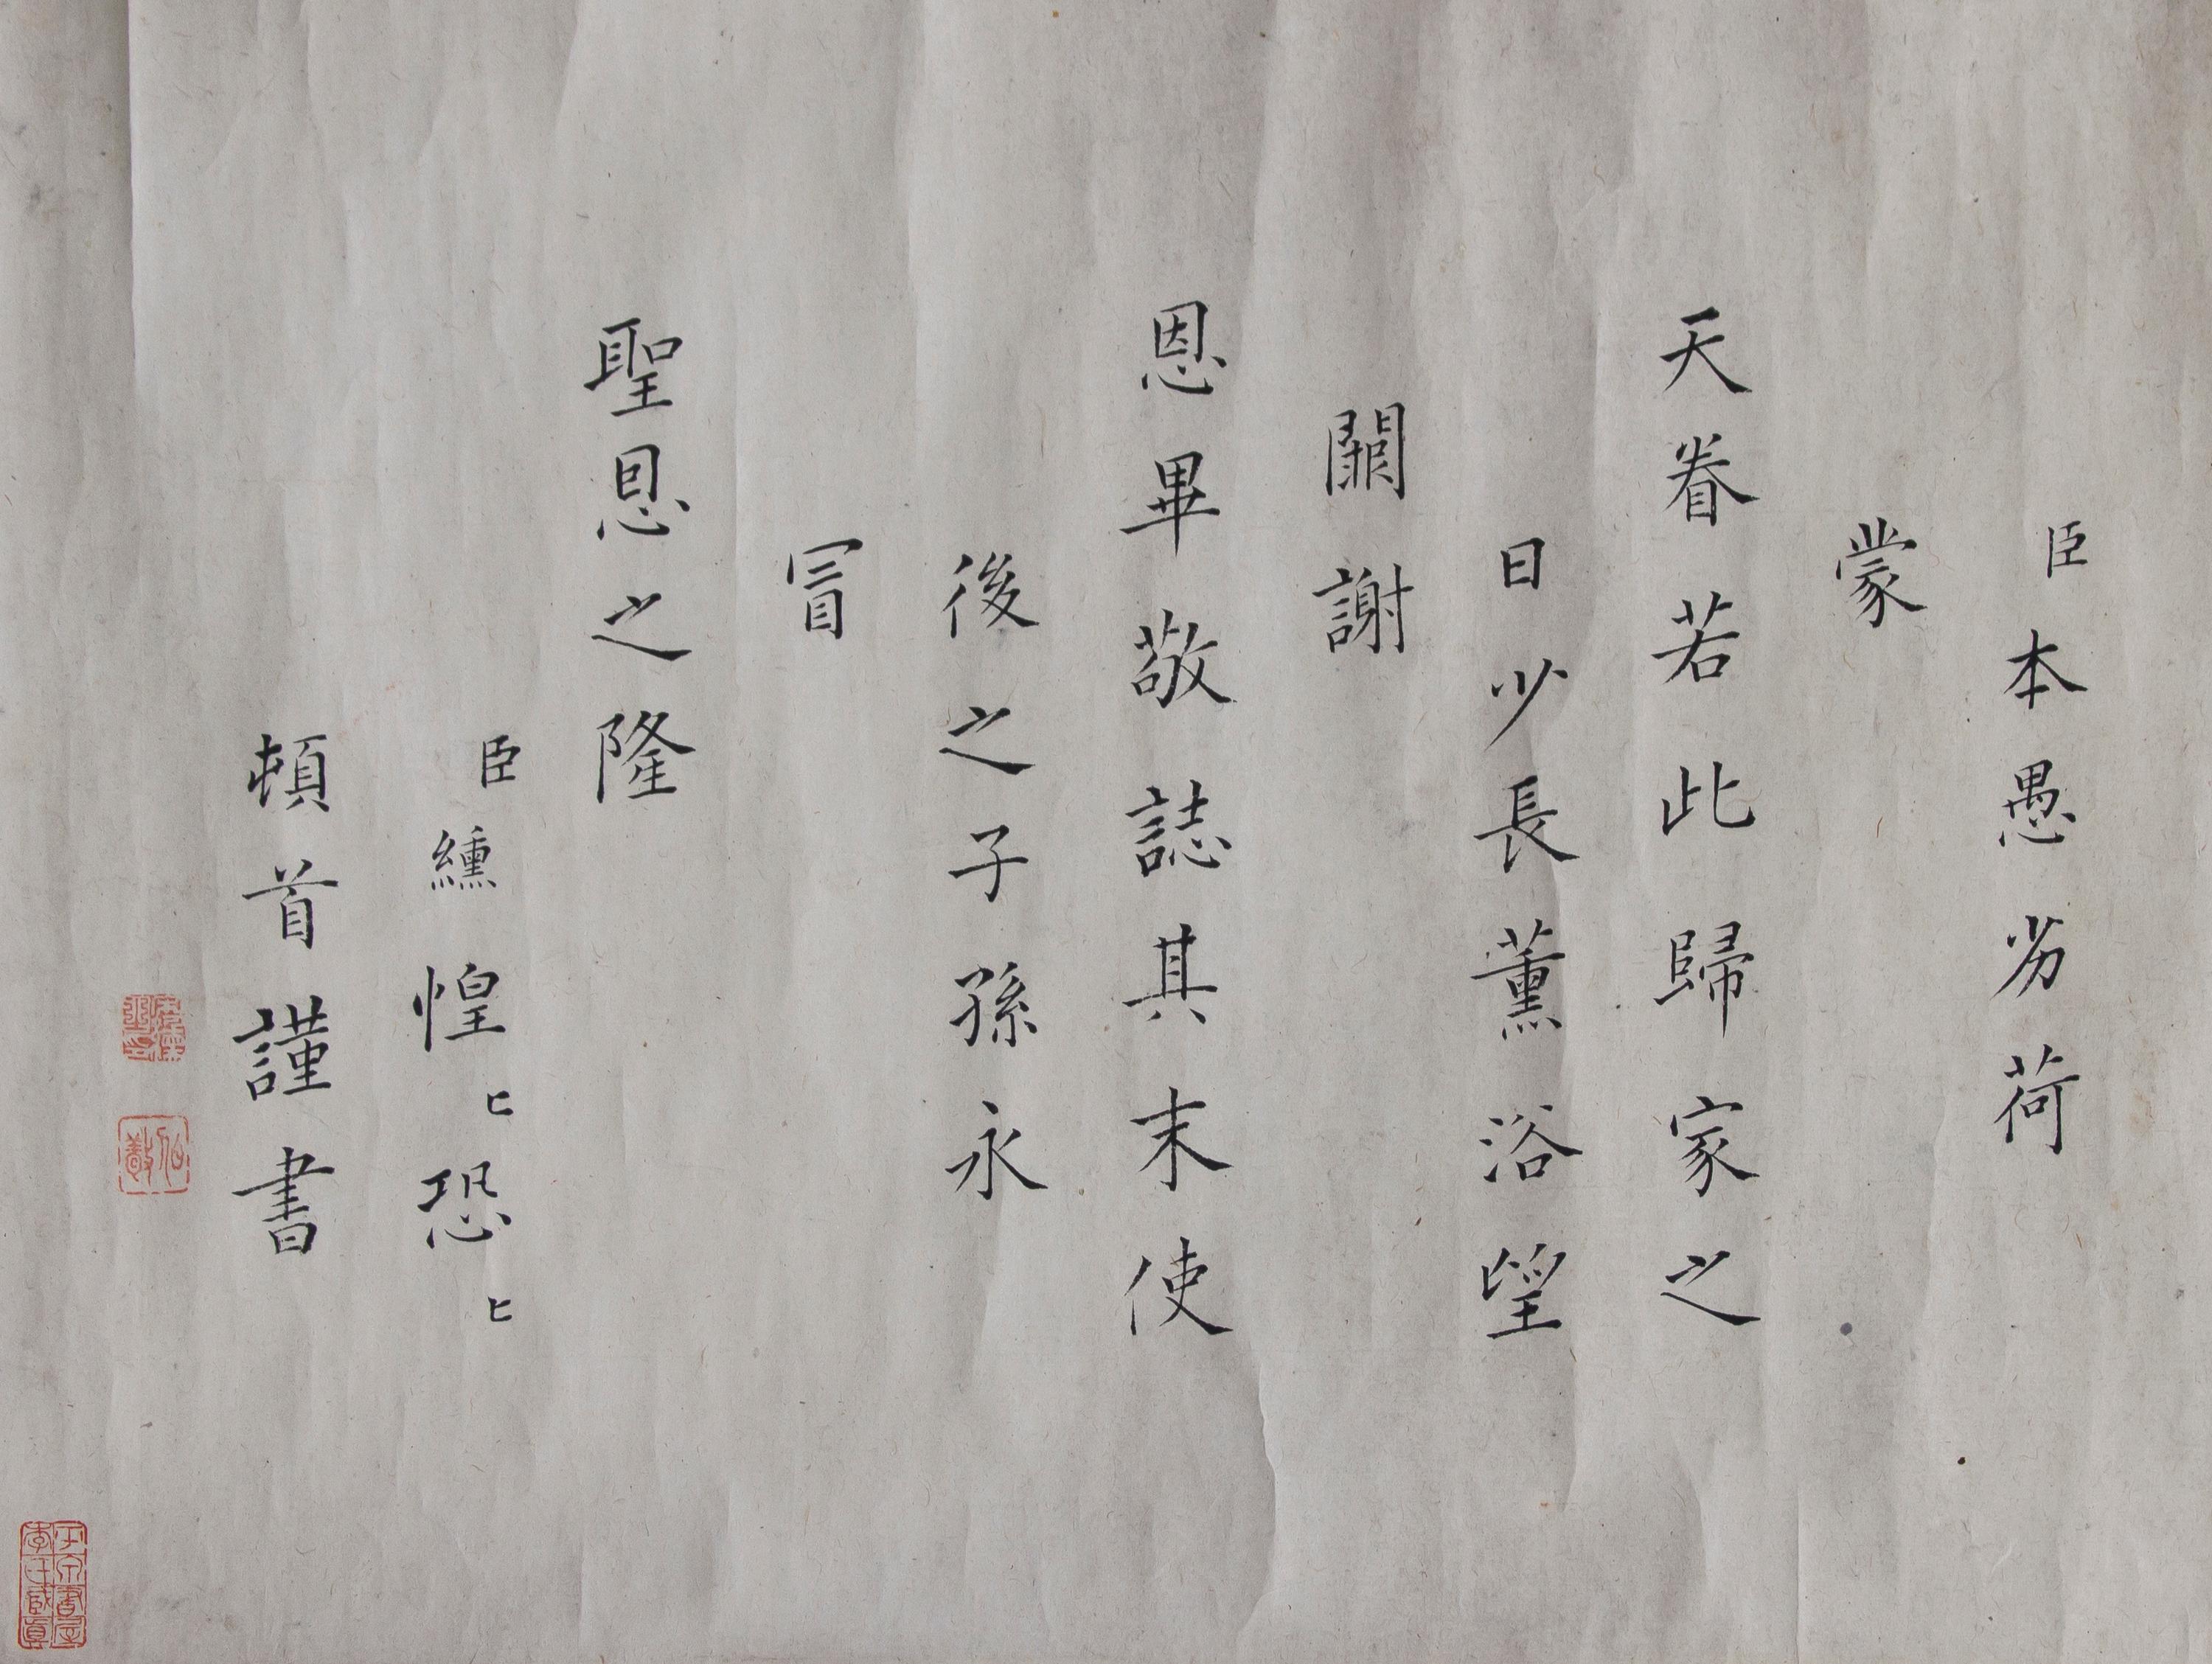 臣本愚劣荷
蒙
天眷若此歸家之
日少長薰浴望
闕謝
恩畢敬誌其末使
後之子孫永
冒
聖恩之隆
臣纁惶〻恐〻
頓首謹書